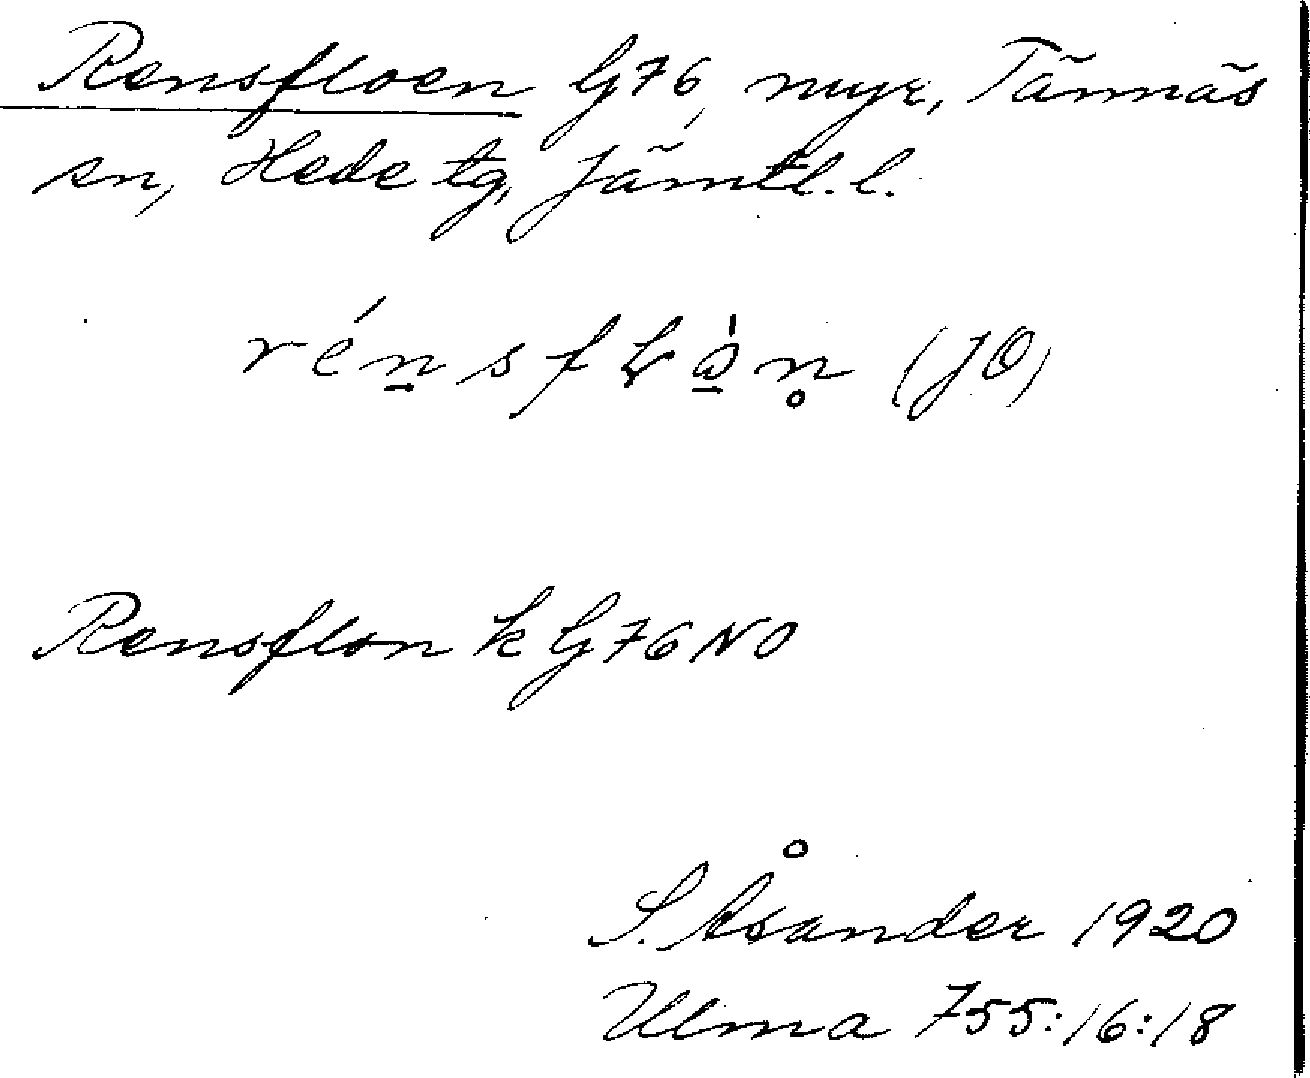 Rensfloen G76, myr, Tännäs
sn, Hede tg, Jämtl. l.
(JO)
Rensflon k G76NO
S. Åsander 1920
Ulma 755:16:18